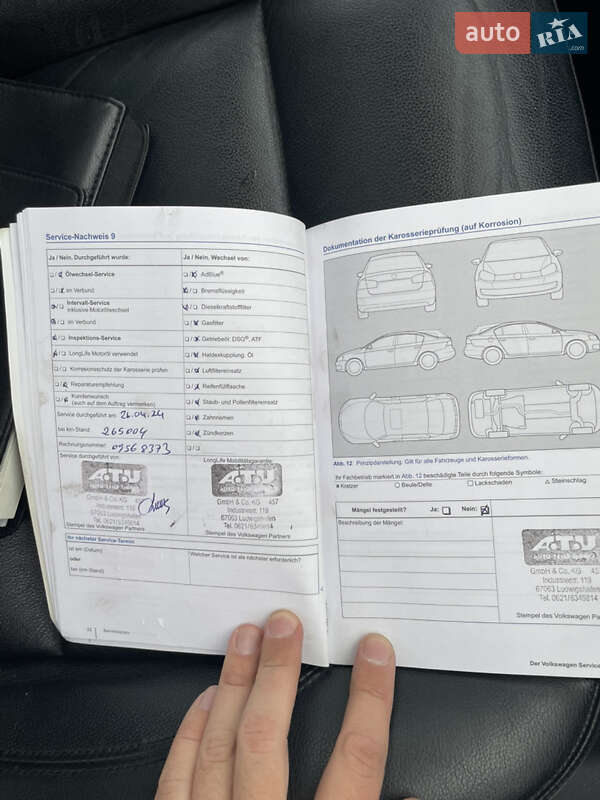 auto RIA .com
Service-Nachweis 9
Ja / Nein, Durchgeführt wurde:
Ja / Nein, Wechsel von:
Ölwechsel-Service
AdBlue®
im Verbund
Bremsflüssigkeit
Intervall-Service
inklusive Motorölwechsel
Dieselkraftstofffilter
im Verbund
Gasfilter
Inspektions-Service
Getriebeöl: DSG®, ATF
LongLife Motoröl verwendet
Haldexkupplung: Öl
Korrosionsschutz der Karosserie prüfen
Luftfiltereinsatz
Reparaturempfehlung
Reifenfüllflasche
Kundenwunsch
(auch auf dem Auftrag vermerken)
Staub- und Pollenfiltereinsatz
Service durchgeführt am: 26.04.24
Zahnriemen
bei km-Stand: 265004
Zündkerzen
Rechnungsnummer: 09568373
Service durchgeführt von:
LongLife Mobilitätsgarantie:
A.T.U
GmbH & Co. KG 457
Industriestr. 119
67063 Ludwigshafen
Tel. 0621/6349814
Stempel des Volkswagen Partners
A.T.U
GmbH & Co. KG 457
Industriestr. 119
67063 Ludwigshafen
Tel. 0621/6349814
Stempel des Volkswagen Partners
Ihr nächster Service-Termin
ist am (Datum)
oder
bei (km-Stand)
Welcher Service ist als nächster erforderlich?
Dokumentation der Karosserieprüfung (auf Korrosion)
Abb. 12 Prinzipdarstellung: Gilt für alle Fahrzeuge und Karosserieformen.
Ihr Fachbetrieb markiert in Abb. 12 beschädigte Teile durch folgende Symbole:
× Kratzer ○ Beule/Delle □ Lackschaden △ Steinschlag
Mängel festgestellt? Ja: Nein:
Beschreibung der Mängel:
A.T.U
GmbH & Co. KG 457
Industriestr. 119
67063 Ludwigshafen
Tel. 0621/6349814
Stempel des Volkswagen Partners
Der Volkswagen Service